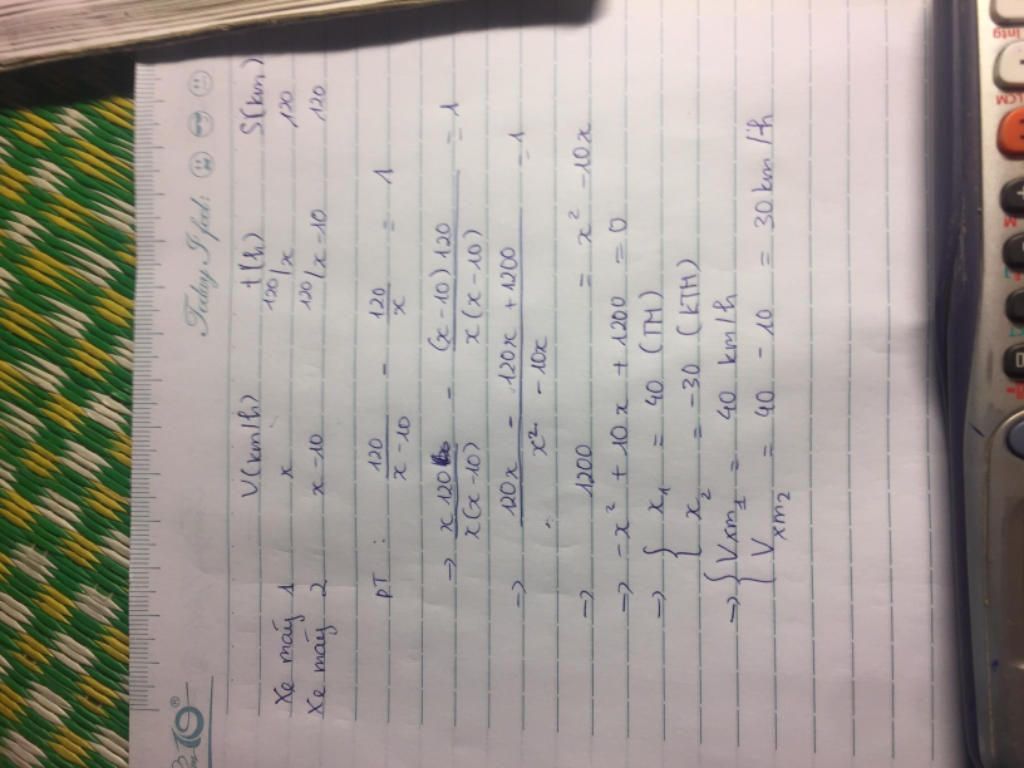 Today I feel:
V(km/h) t(h) S(km)
Xe máy 1 x 120/x 120
Xe máy 2 x-10 120/x-10 120
PT: 120/(x-10) - 120/x = 1
→ x120/x(x-10) - (x-10)120/x(x-10) = 1
→ (120x - 120x + 1200)/(x² - 10x) = 1
→ 1200 = x² - 10x
→ -x² + 10x + 1200 = 0
→ { x₁ = 40 (TM)
{ x₂ = -30 (KTM)
→ { Vxm₁ = 40 km/h
{ Vxm₂ = 40 - 10 = 30 km/h